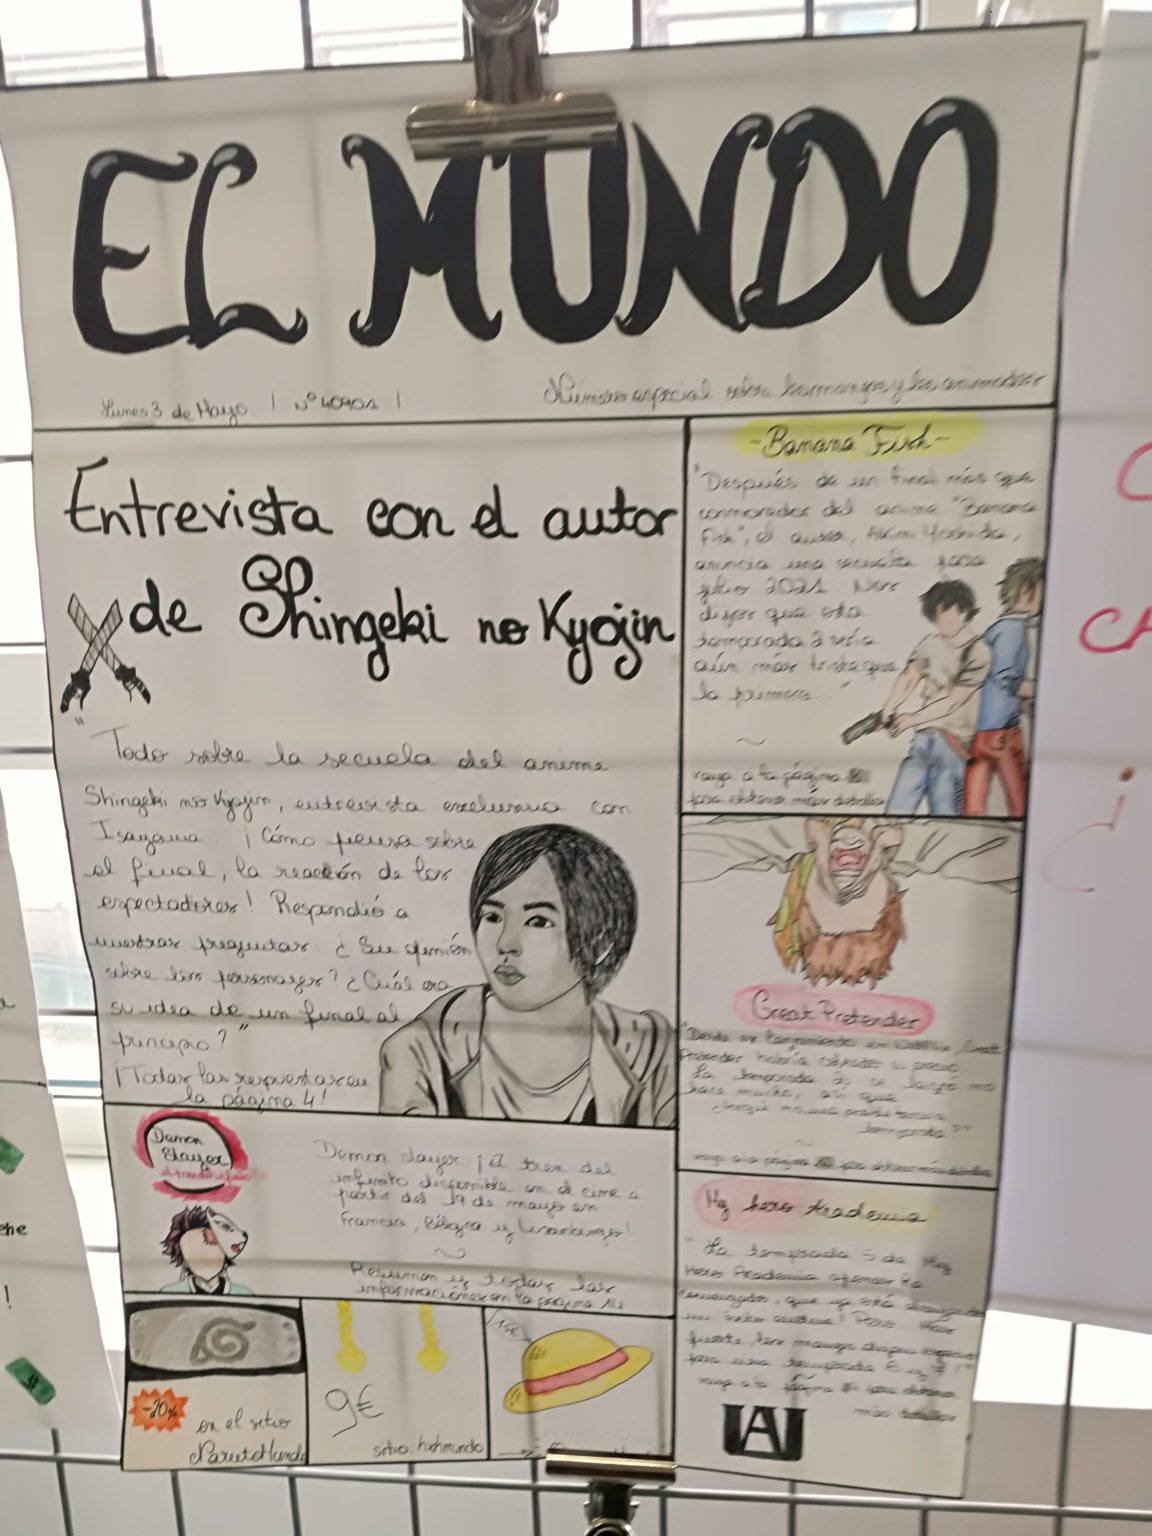 EL MUNDO
Lunes 3 de Mayo | Nº 40901 |
Número especial sobre los mangas y los animados
Entrevista con el autor
de Shingeki no Kyojin
"Todo sobre la secuela del anime
Shingeki no Kyojin, entrevista exclusiva con
Isayama: ¡Cómo piensa sobre
el final, la reacción de los
espectadores! Respondió a
nuestras preguntas: ¿Su opinión
sobre los personajes? ¿Cuál era
su idea de un final al
principio?"
¡Todas las respuestas en
la página 4!
-Banana Fish-
"Después de un final más que
del anime "Banana
Fish", el autor, Akimi Yoshida,
anuncia una secuela para
julio 2021. Nos
dijo que esta
temporada 2 sería
aún más triste que
la primera..."
vaya a la página
para obtener más detalles
Great Pretender
"Desde su lanzamiento en Netflix, Great
Pretender
La temporada 2 se lanzó no
hace mucho, así que
temporada?"
vaya a la página para obtener más detalles
Demon
Slayer
el tren del infinito
Demon slayer: ¡El tren del
infinito disponible en el cine a
partir del 19 de mayo en
Francia, Bélgica y Luxemburgo!
Resumen y todas las
informaciones en la página 14
My hero Academia
"La temporada 5 de My
Hero Academia apenas ha
comenzado, que ya está
un éxito
para una temporada 6 y 7!"
vaya a la página para obtener
más detalles
UA
-20%
en el sitio
NarutoMundo
9€
sitio: hxhmundo
15€